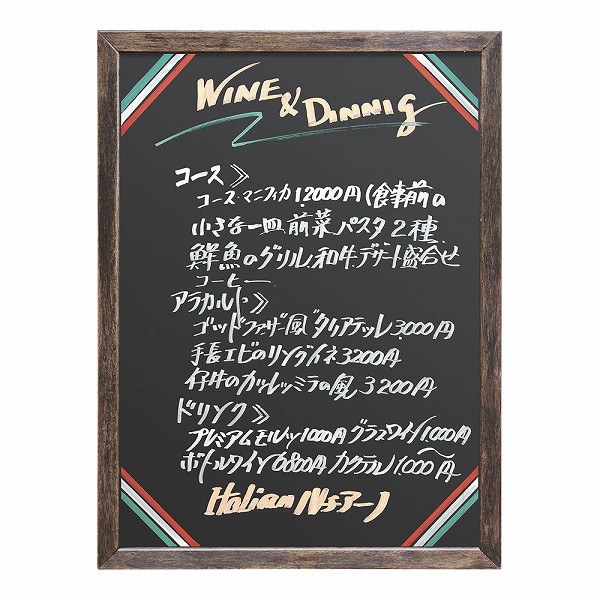 WINE & DINNIG
コース》
コース・マニフィカ 12000円（食事前の
小さな一皿 前菜 パスタ2種
鮮魚のグリル 和牛 デザート盛合せ
コーヒー
アラカルト》
ゴッドファザー風 タリアテッレ 3.000円
手長エビのリングイネ 3200円
仔牛のカツレツ ミラノ風 3200円
ドリンク》
プレミアムモルツ 1000円 グラスワイン 1000円
ボトルワイン 6800円 カクテル 1.000円〜
Italian バッチアーノ